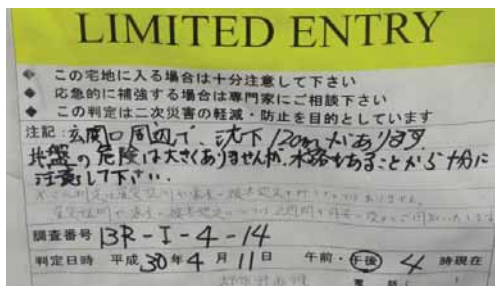 LIMITED ENTRY
◆ この宅地に入る場合は十分注意して下さい
◆ 応急的に補強する場合は専門家にご相談下さい
◆ この判定は二次災害の軽減・防止を目的としています
注記：玄関口周辺で、沈下120mmがあります
地盤の危険は大きくありませんが、水路もあることから十分に
注意して下さい.
調査番号 13R-I-4-14
判定日時 平成30年4月11日 午前・午後 4 時現在
電話(